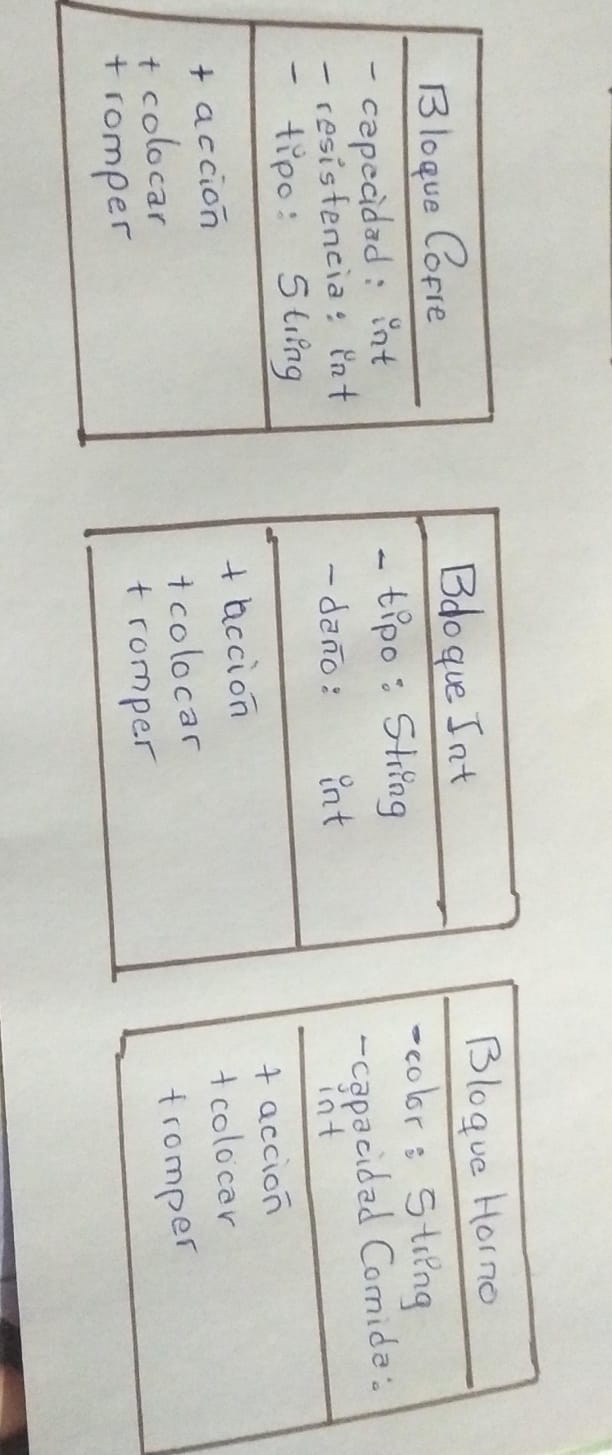 Bloque Cofre
- capacidad: int
- resistencia: int
- tipo: String
+ acción
+ colocar
+ romper
Bdoque Int
- tipo: String
- daño: int
+ acción
+ colocar
+ romper
Bloque Horno
- color: String
- capacidad Comida:
int
+ acción
+ colocar
+ romper